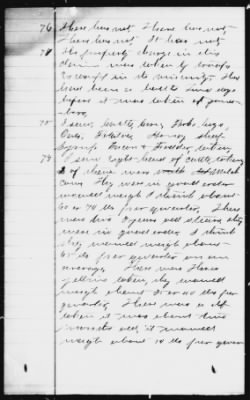 76 There has not, There has not,
There has not, It has not,
77 The property charge in this
claim was taken by troops
Encamped in the vicinity. there
had been a battle two days
before it was taken at
boro
78 I seen cattle, corn, Hogs,
Oats, Fodder, Honey sheep
Syrup Bacon & Fodder, taken,
79 I seen eight head of cattle, taken,
4 of them was Milch
Cows They were in good order
would weigh I think about
60 or 70 lbs per quarter, There
was two 3 years old steers they
were in good order, I think
they would weigh about
lbs per quarter on an
average, There was three
yearlings taken, they would
weigh about 35 or 40 lbs per
quarter, There was a calf
taken it was about two
months old, it would
weigh about 10 lbs per quarter